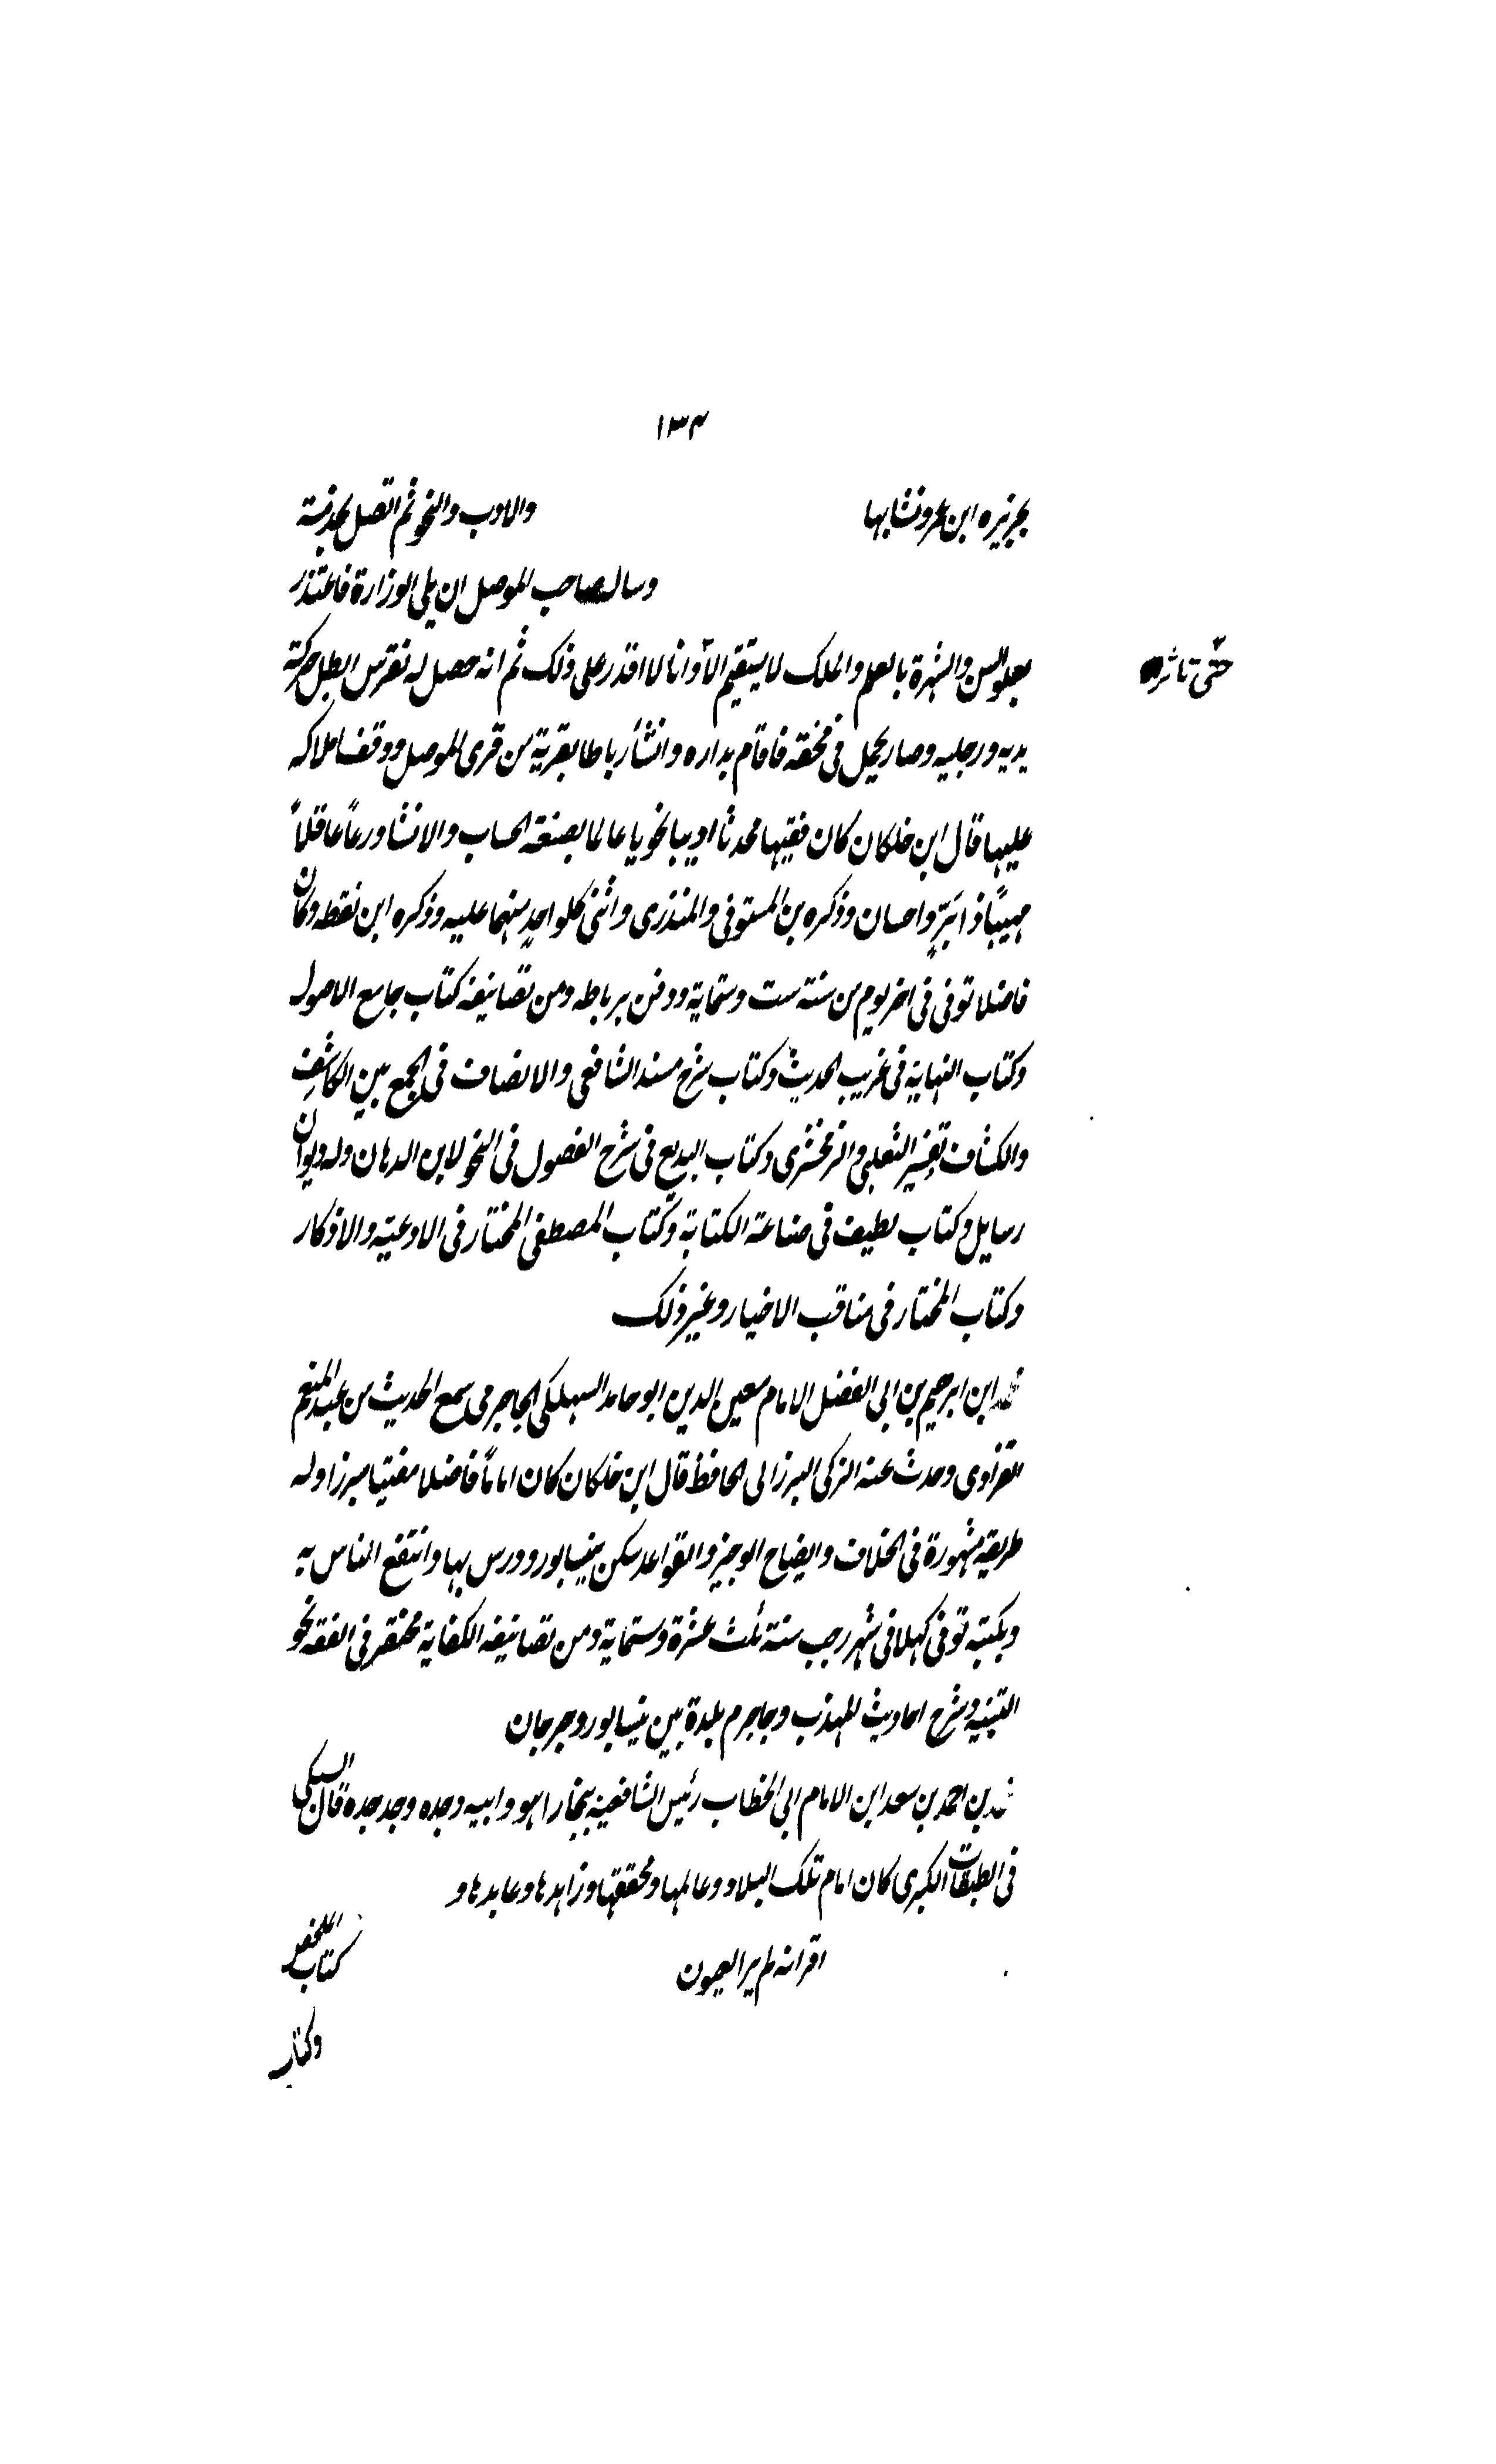 ١٣٤
بجزيره ابن عمرو نشابها والادب والنحو ثم اتصل بخدمة
وسالہ صاحب الموصل ان يلي الوزارة فاعتذر
بعلو السن والشهرة بالعلم والملك لا يستقيم الا وانا لا اقدر على ذلك ثم انه حصل له نقرس ابطل حركة
يديه ورجليه وصار يحمل في محفة فاقام بداره وانشأ رباطا بقرية من قرى الموصل ووقف املاكه
عليها قال ابن خلكان كان فقيها محدثا اديبا نحويا عالما بصنعة الحساب والانشا ورعاً عاقلاً
مهيباً ذا بَرٍّ واحسان وذكره بن المستوفي والمنذرى واثنى كلواحدٍ منهما عليه وذكره ابن نقطه وكان
فاضلا توفى فى اخر يوم من سنة ست وستماية ودفن برباطه ومن تصانيفه كتاب جامع الاصول
وكتاب النهاية فى غريب الحديث وكتاب شرح مسند الشافعي والانصاف فى الجمع بين الكاشف
والكشاف تفسير الثعلبي والزمخشرى وكتاب البديع فى شرح الفصول فى النحو لابن الدهان وله ديوان
رسايل وكتاب لطيف فى صناعة الكتابة وكتاب المصطفى المختار فى الادعية والاذكار
وكتاب المختار فى مناقب الاخيار وغير ذلك
محمد ابن ابرهيم بن ابى الفضل الامام معين الدين ابو حامد السهلكي الجاجرمى سمع الحديث من عبد المنعم
الفراوى وحدث عنه الزكى البرزالى الحافظ قال ابن خلكان كان اماماً فاضلا مفتيا مبرزا وله
طريقه مشهورة فى الخلاف وايضاح الوجيز والقواعد سكن نيسابور ودرس بها وانتفع الناس به
وبكتبه توفى كهلا فى شهر رجب سنة ثلث عشرة وستماية ومن تصانيفه الكفاية مختصر فى الفقه نحو
التنبيه وشرح احاديث المهذب وجاجرم بلدة بين نيسابور وجرجان
محمد بن احمد بن سعد ابن الامام ابى الخطاب رئيس الشافعية ببخارا هو وابيه وجده وجد جده قال السبكى
فى الطبقات الكبرى كان امام تلك البلاد وعالمها ومحققها وزاهدها وعابدها و
اقرانه طرير العيون الملخص
كتاب
وكتاب
حتى تاثر